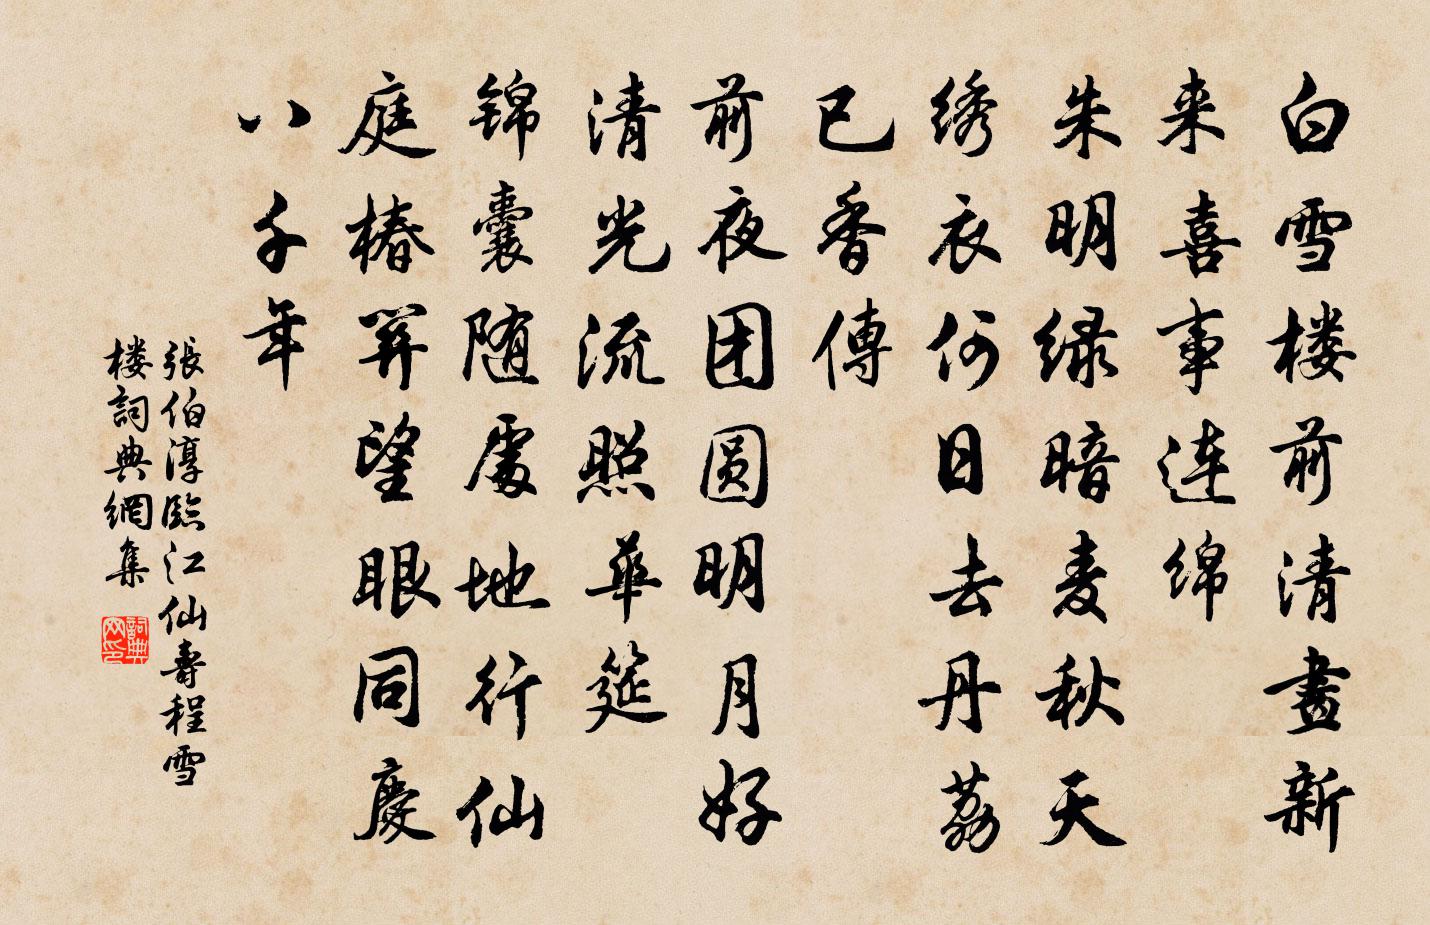 白雪楼前清晝新
来喜事连绵
朱明绿暗麦秋天
绣衣何日去丹荔
已香傳
前夜团圆明月好
清光流照華筵
锦囊随處地行仙
庭椿開望眼同慶
八千年
張伯淳臨江仙壽程雪
楼詞典網集
詞典
网印